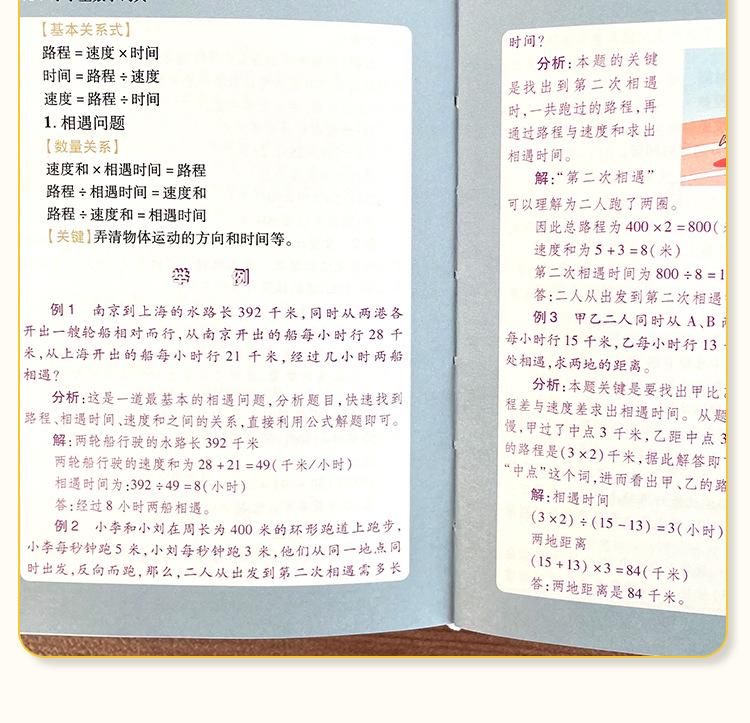 【基本关系式】
路程=速度×时间
时间=路程÷速度
速度=路程÷时间
1. 相遇问题
【数量关系】
速度和×相遇时间=路程
路程÷相遇时间=速度和
路程÷速度和=相遇时间
【关键】弄清物体运动的方向和时间等。
举 例
例1 南京到上海的水路长 392 千米,同时从两港各
开出一艘轮船相对而行,从南京开出的船每小时行 28 千
米,从上海开出的船每小时行 21 千米,经过几小时两船
相遇?
分析:这是一道最基本的相遇问题,分析题目,快速找到
路程、相遇时间、速度和之间的关系,直接利用公式解题即可。
解:两轮船行驶的水路长 392 千米
两轮船行驶的速度和为 28+21=49(千米/小时)
相遇时间为:392÷49=8(小时)
答:经过 8 小时两船相遇。
例2 小李和小刘在周长为 400 米的环形跑道上跑步,
小李每秒钟跑 5 米,小刘每秒钟跑 3 米,他们从同一地点同
时出发,反向而跑,那么,二人从出发到第二次相遇需多长
时间?
分析:本题的关键
是找出到第二次相遇
时,一共跑过的路程,再
通过路程与速度和求出
相遇时间。
解:“第二次相遇”
可以理解为二人跑了两圈。
因此总路程为 400×2=800(
速度和为 5+3=8(米)
第二次相遇时间为 800÷8=1
答:二人从出发到第二次相遇
例3 甲乙二人同时从 A、B
每小时行 15 千米,乙每小时行 13
处相遇,求两地的距离。
分析:本题关键是要找出甲比
程差与速度差求出相遇时间。从题
慢,甲过了中点 3 千米,乙距中点 3
的路程是(3×2)千米,据此解答即
“中点”这个词,进而看出甲、乙的路
解:相遇时间
(3×2)÷(15-13)=3(小时)
两地距离
(15+13)×3=84(千米)
答:两地距离是 84 千米。